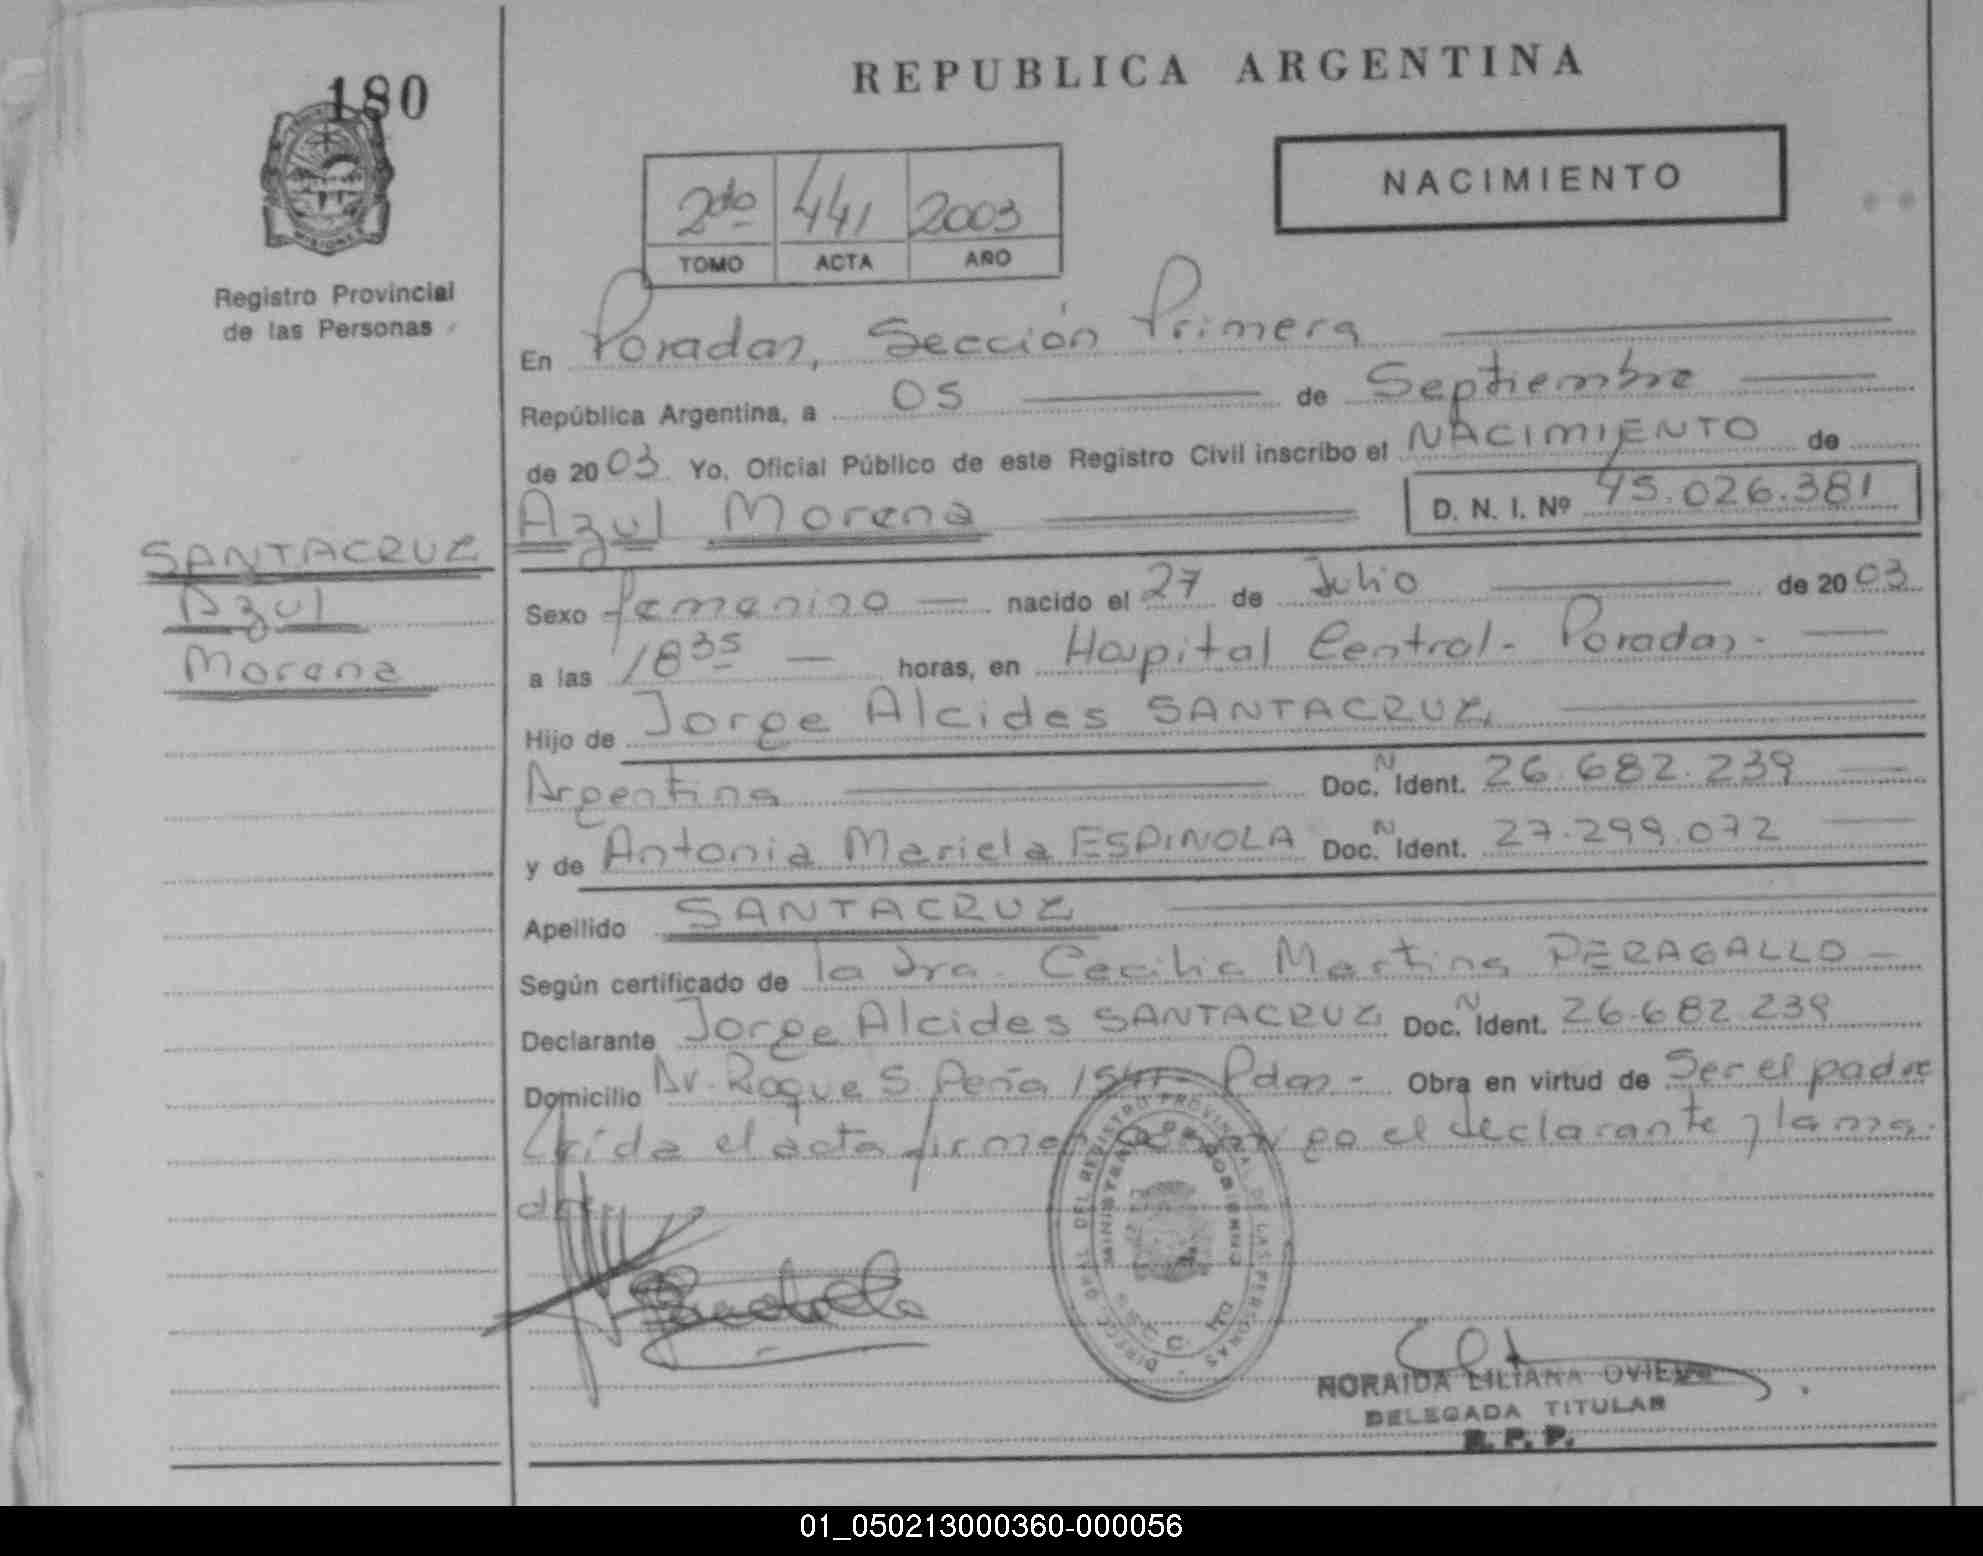 180
MISIONES
Registro Provincial
de las Personas
SANTACRUZ
Azul
Morena
REPUBLICA ARGENTINA
NACIMIENTO
2do 441 2003
TOMO ACTA AÑO
En Posadas, Sección Primera
República Argentina, a 05 de Septiembre
de 2003. Yo, Oficial Público de este Registro Civil inscribo el NACIMIENTO de
Azul Morena D. N. I. Nº 45.026.381
Sexo femenino nacido el 27 de Julio de 2003
a las 18 35 horas, en Hospital Central - Posadas -
Hijo de Jorge Alcides SANTACRUZ,
Argentina Doc. N Ident. 26.682.239
y de Antonia Mariela ESPINOLA Doc. N Ident. 27.299.072
Apellido SANTACRUZ
Según certificado de la Dra. Cecilia Martina PERAGALLO
Declarante Jorge Alcides SANTACRUZ Doc. N Ident. 26.682.239
Domicilio Av. Roque S. Peña 1541 - Pdas - Obra en virtud de Ser el padre
Leída el acta firman conmigo el declarante y la ma-
dre
DIRECC. GRAL. DEL REGISTRO PROVINCIAL DE LAS PERSONAS
MINISTERIO DE GOBIERNO
NORAIDA LILIANA OVIEDO
DELEGADA TITULAR
R. P. P.
01_050213000360-000056